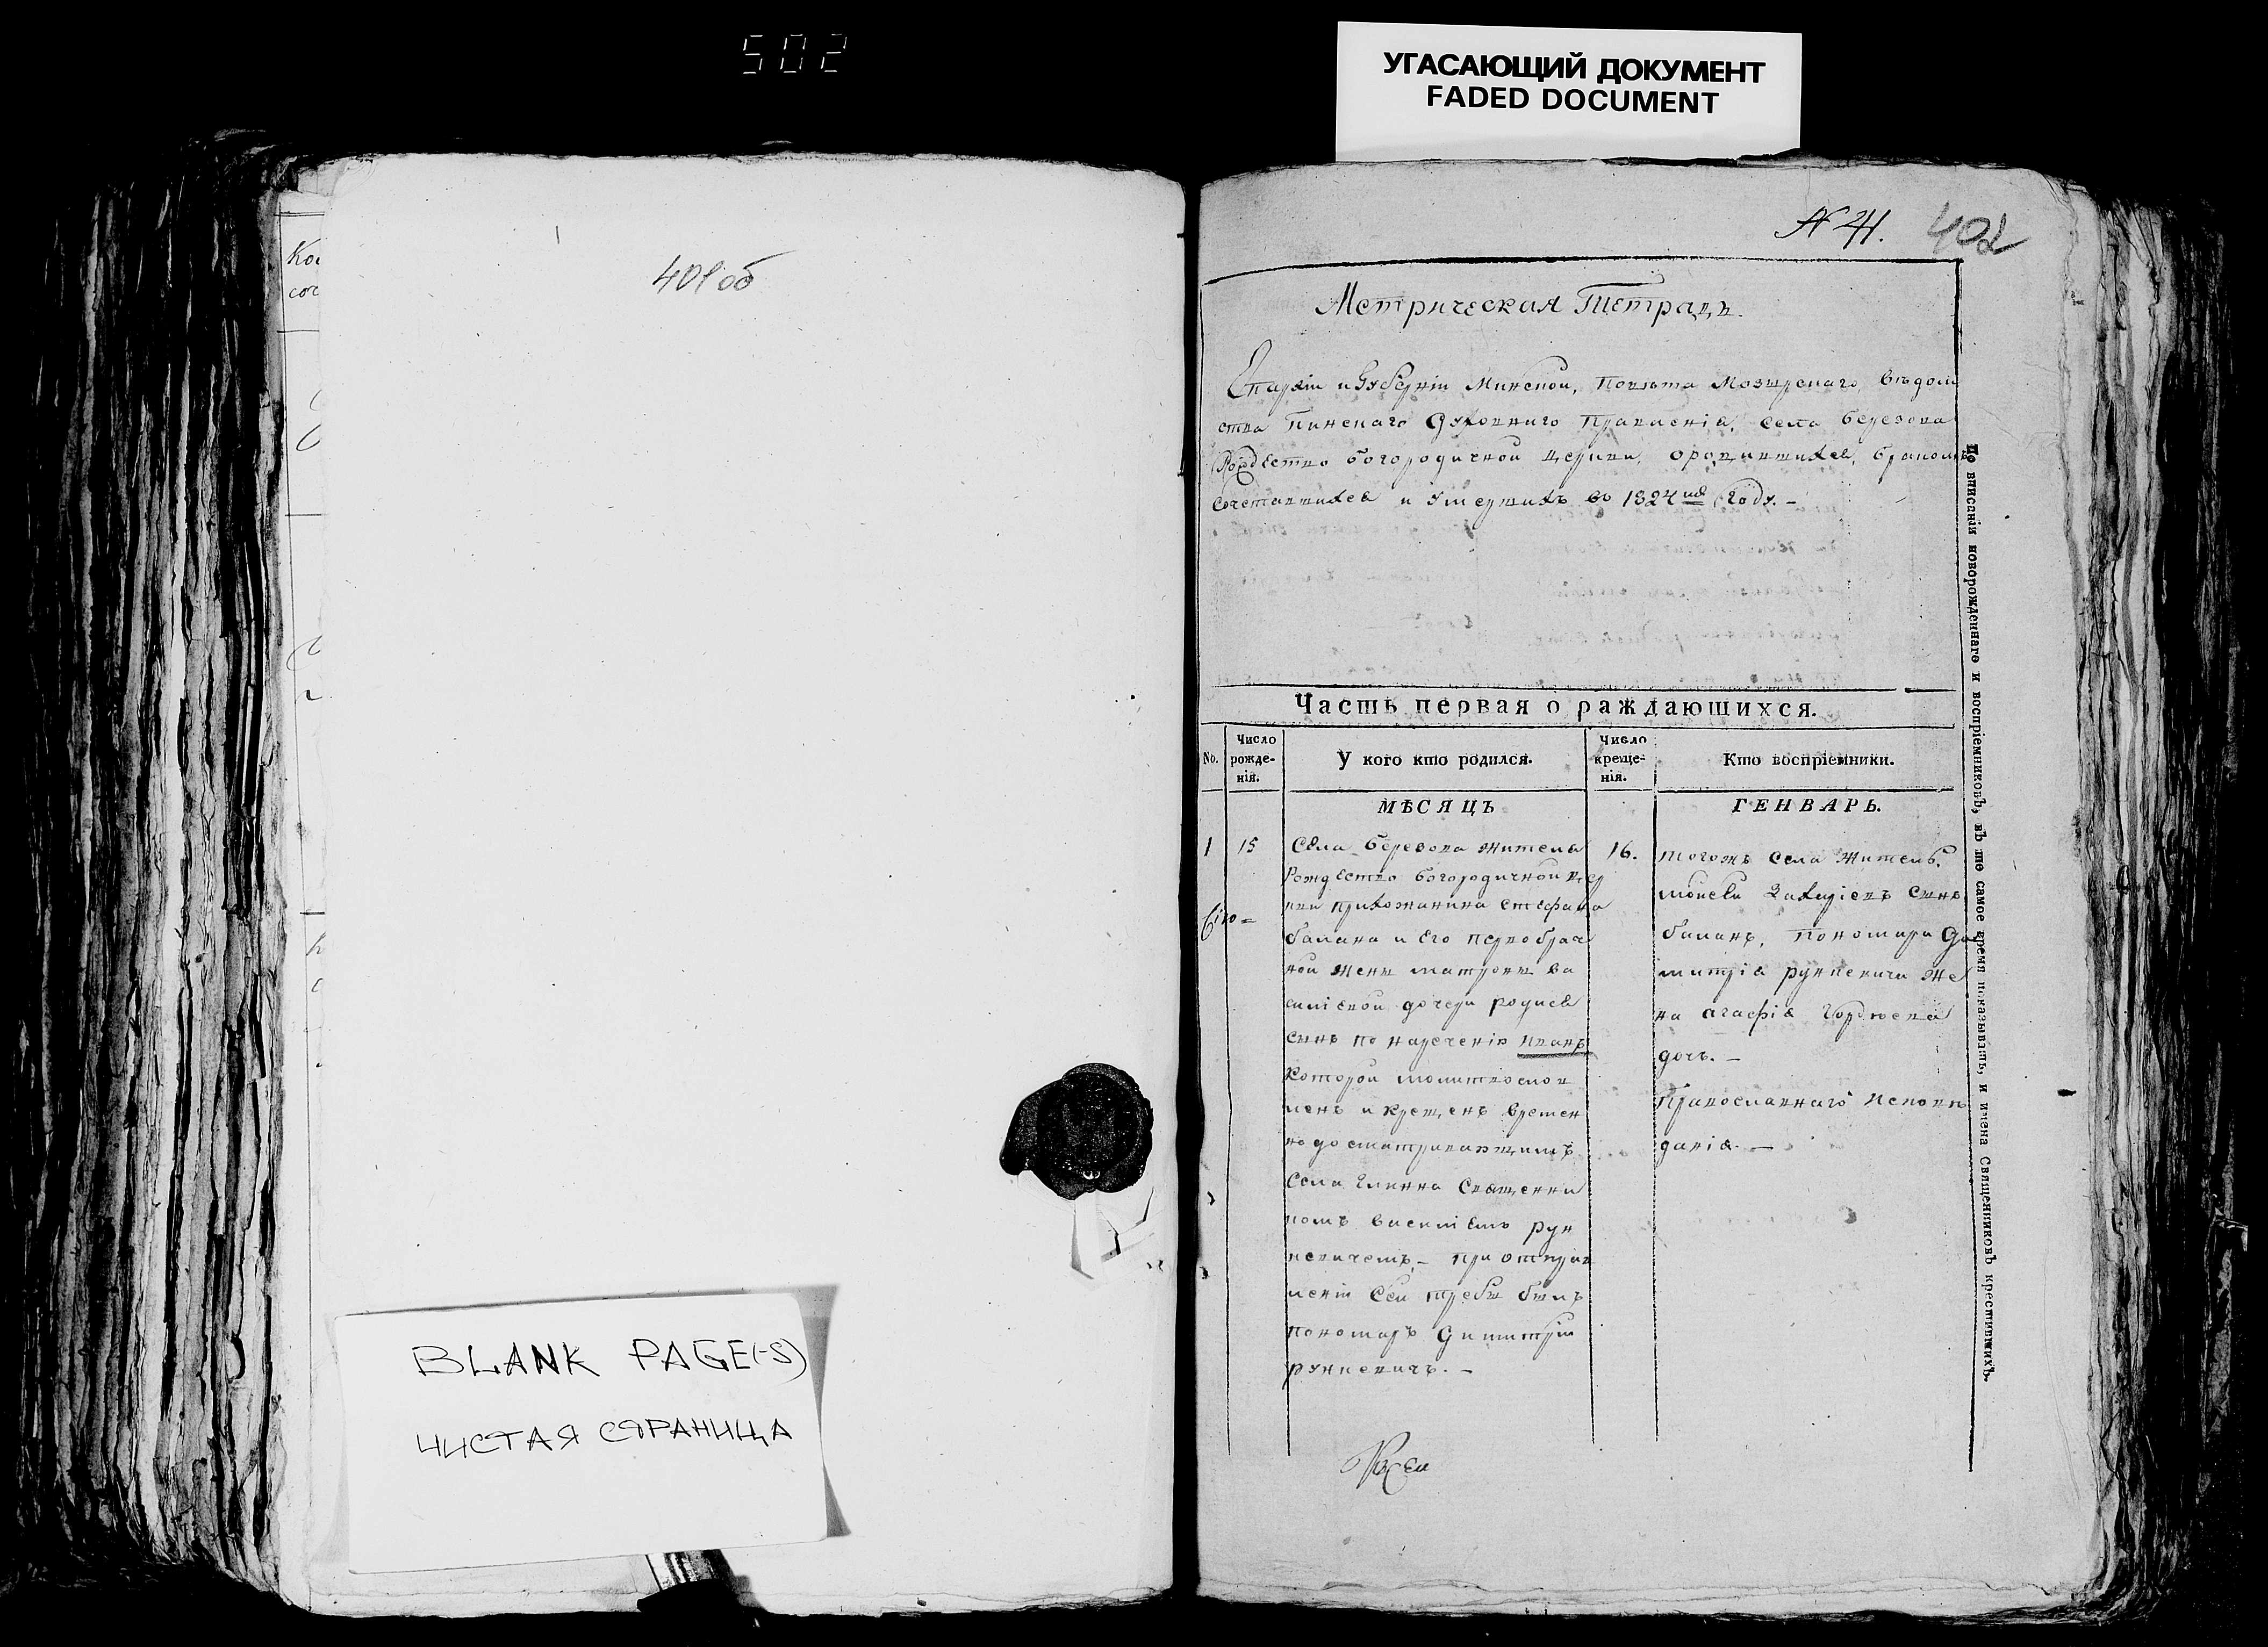 502
УГАСАЮЩИЙ ДОКУМЕНТ
FADED DOCUMENT
401об
BLANK PAGE(-S)
ЧИСТАЯ СТРАНИЦА
402
Метрическая Тетрадь.
Епархіи и Губерніи Минской, Повѣта Мозырскаго, вѣдом
ства Пинскаго Духовнаго Правленія, села Березова
Рождество Богородичной Церкви, ородившихся, бракомъ
сочетавшихся и умершихъ въ 1824мъ Году. –
Часть первая о раждающихся.
No.
Число рожденія.
У кого кто родился.
Число крещенія.
Кто воспріемники.
МѢСЯЦЪ
ГЕНВАРЬ.
1
15
Села Березова жителя
Рождество Богородичной цер
кви прихожанина Стефана
балана и Его первобрач
ной жены Матроны ва
силіевой дочери родися
сынъ по нареченію Иванъ
которой молитвослов
ленъ и крещенъ времен
но досматривающимъ
Села Глинна Священни
комъ Василіемъ рун
кевичемъ. – при отправ
леніи Сей требы былъ
пономарь Димитрій
рункевичъ. –
16.
тогожъ Села житель
Моисей Захаріевъ Сынъ
баланъ, пономаря Ди
митрія рункевича же
на агафія Гордѣева
дочь. –
Православнаго Исповѣ
данія. –
По вписаніи новорожденнаго и воспріемниковъ, въ то самое время показывать, и имена Священниковъ крестившихъ.